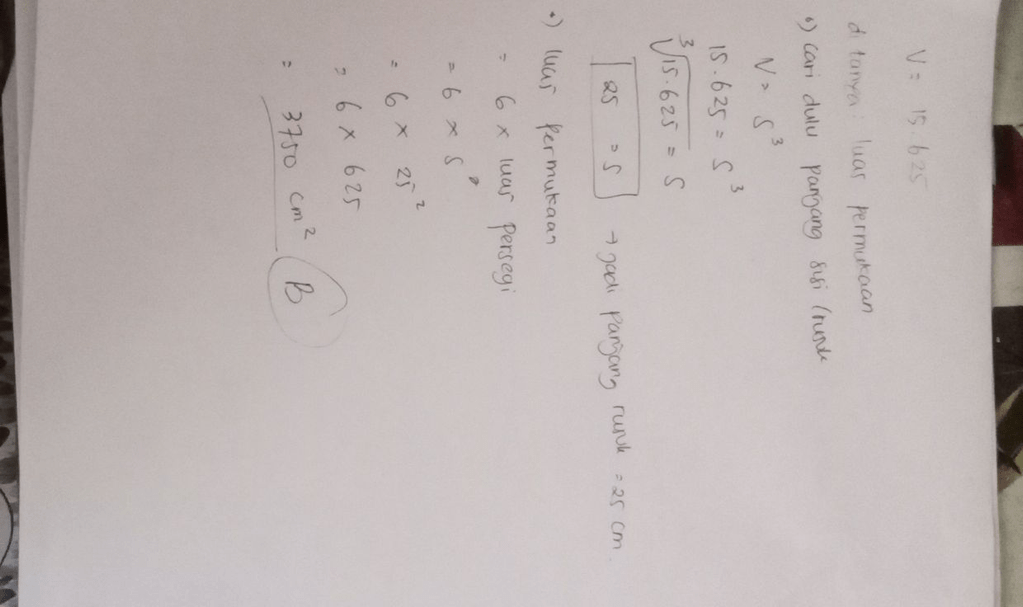 V = 15.625
ditanya: luas permukaan
•) cari dulu panjang sisi (rusuk
V = s³
15.625 = s³
³√15.625 = s
25 = s → jadi panjang rusuk = 25 cm.
•) luas permukaan
= 6 x luas persegi
= 6 x s²
= 6 x 25²
= 6 x 625
= 3750 cm² B